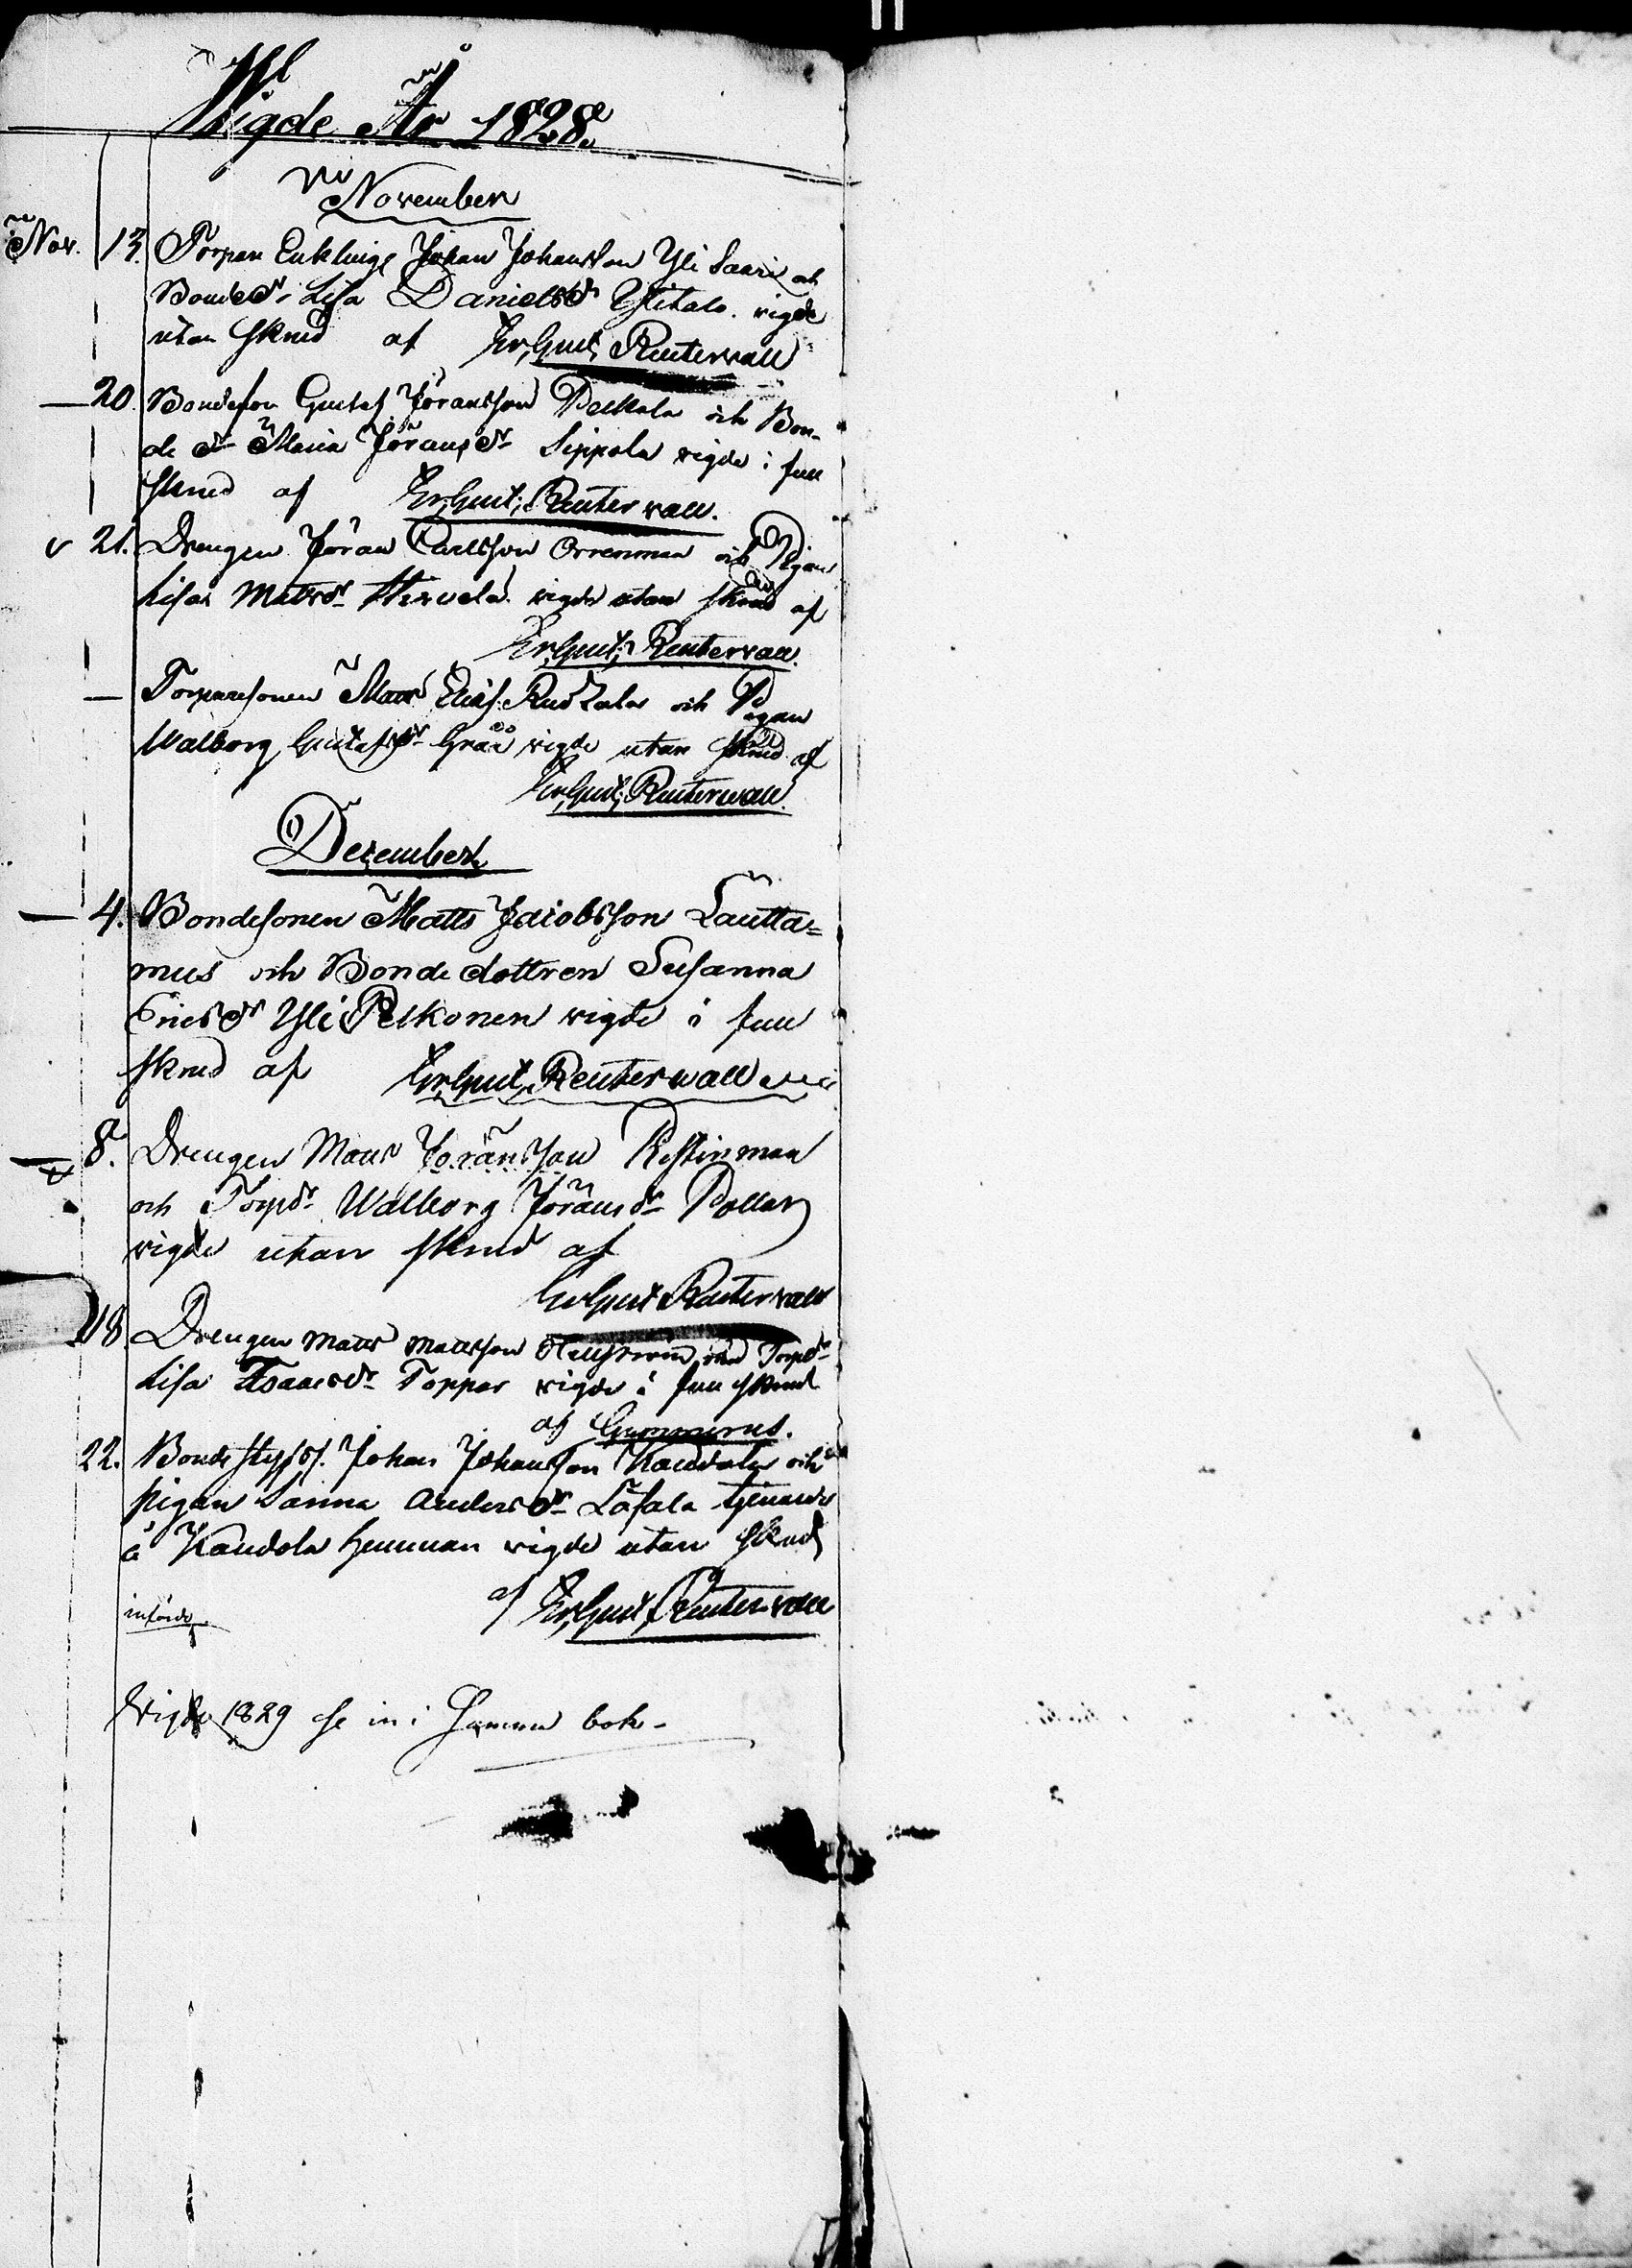 Wigde År 1828.
November
Nov. 13. Torpare Enklinge Johan Johansson Yli Saari och
Bonded:r Lisa Danielsd:r Ylitalo. vigde
utan skrud af Er. Gust. Reuterwall
20. Bondeson Gustaf Jöransson Peckala och Bon-
de d:r Maria Jöransd:r Sippola vigde i full
skrud af Er. Gust. Reuterwall.
21. Drengen Jöran Carlsson Orrenmaa och Pigan
Lisa Mattsd:r Hirvelä vigde utan skrud af
Er. Gust. Reuterwall.
Torparesonen Matts Eliæs. och Pigan
Walborg Gustafsd:r Gråå vigde utan skrud af
Er. Gust. Reuterwall.
December
4. Bondesonen Matts Jacobsson Lautta=
mus och Bonde dottren Susanna
Ericsd:r Yli Pelkonen vigde i full
skrud af Er. Gust. Reuterwall
8. Drengen Matts Jöransson
och Torpd:r Walborg Jöransd:r Pollari
vigde utan skrud af
Er Gust Reuterwall
18. Drengen Matts Mattsson Torpd:r
Lisa Isaacsd:r Toppar vigde i full skrud
af Gummerus.
22. Bonde Johan Johansson Kaudola och
pigan Sanna Andersd:r Läfala tjenande
å Kaudola hemman vigde utan skrud
af Er. Gust. Reuterwall
införde
Wigde 1829 se in i Samma bok-